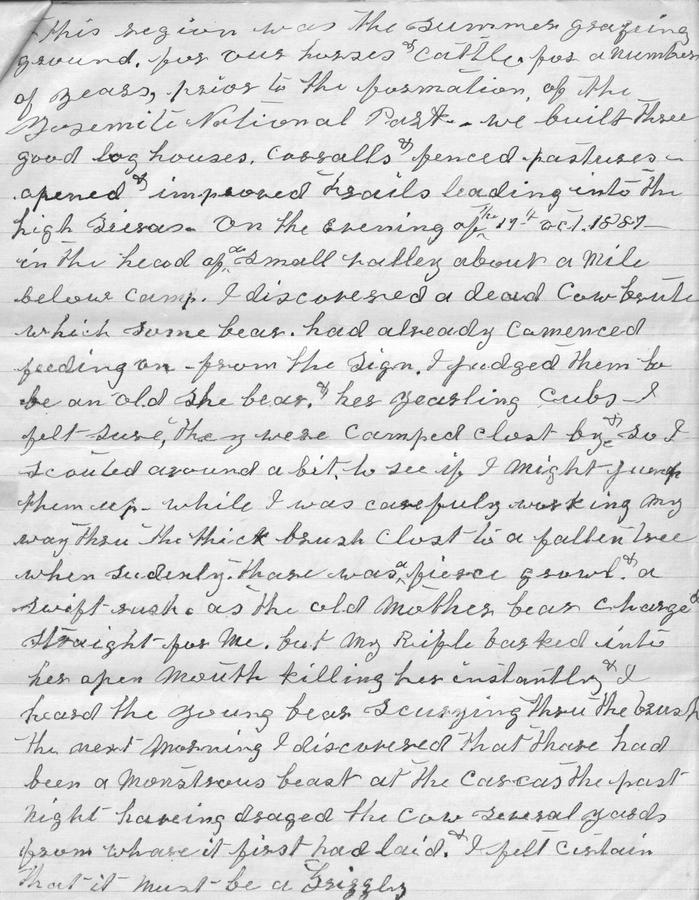 This region was the summer grazeing
ground, for our horses & cattle. for a number
of years, prior to the formation, of the
Yosemite National Park - we built three
good log houses. corralls & fenced pastures -
opened & improved trails leading into the
high Sieras - On the evening of the 17th oct. 1887 -
in the head of a small valley about a mile
below camp. I discovered a dead cow brute
which some bear. had already comenced
feeding on - from the sign. I judged them to
be an old she bear. & her yearling cubs - I
felt sure, they were camped clost by & so I
scouted around a bit. to see if I might jump
them up - while I was carefuly working my
way thru the thick brush clost to a fallen tree
when sudenly. thare was a fierce growl. & a
swift rush. as the old mother bear charged
straight for me. but my Rifle barked into
her open mouth killing her instantly & I
heard the young bear scurying thru the brush
the next morning I discovered that thare had
been a monstrous beast at the carcas the past
night haveing draged the cow several yards
from whare it first had laid. & I felt certain
that it must be a Grizzly